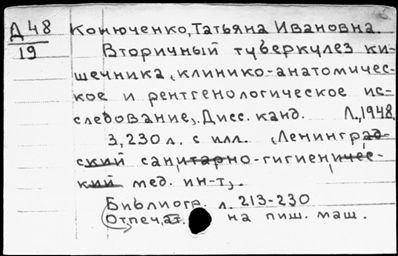 Д 48
19
Конюченко, Татьяна Ивановна.
Вторичный туберкулез ки-
шечника (клинико-анатомичес-
кое и рентгенологическое ис-
следование). Дисс. канд. Л., 1948.
3, 230 л. с илл. (Ленинград-
ский санитарно-гигиеничес-
кий мед. ин-т).
Библиогр. л. 213-230
Отпечат. на пиш. маш.